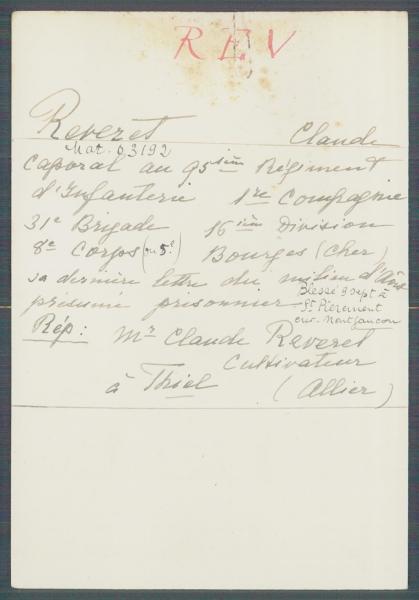 REV
Reveret Claude
Mat. 03192
Caporal au 95ième Régiment
d'Infanterie 1re Compagnie
31e Brigade 16ième Division
8e Corps (ou 5e) Bourges (Cher)
sa dernière lettre du milieu d'Août
présumé prisonnier
Blessé 9 sept à
St Pierremont
env. Montfaucon
Rép: Mr Claude Reveret
Cultivateur
à Thiel (Allier)